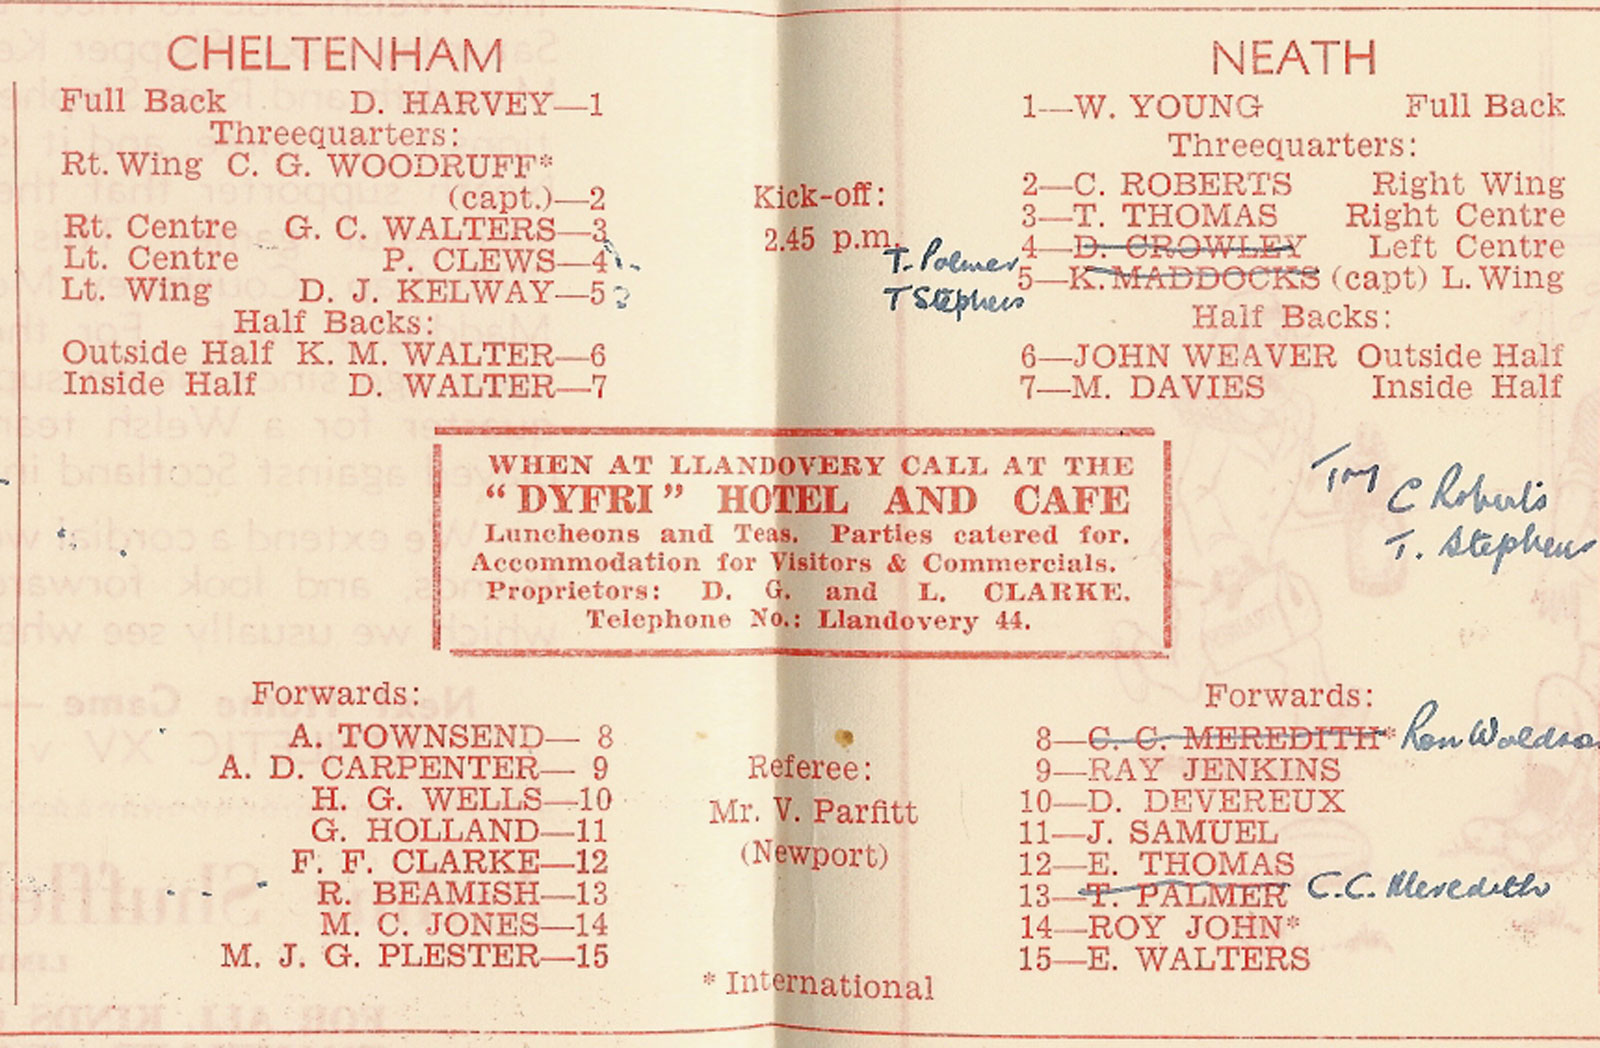 CHELTENHAM
Full Back D. HARVEY—1
Threequarters:
Rt. Wing C. G. WOODRUFF*
(capt.)—2
Rt. Centre G. C. WALTERS—3
Lt. Centre P. CLEWS—4
Lt. Wing D. J. KELWAY—5
Half Backs:
Outside Half K. M. WALTER—6
Inside Half D. WALTER—7
Kick-off:
2.45 p.m.
NEATH
1—W. YOUNG Full Back
Threequarters:
2—C. ROBERTS Right Wing
3—T. THOMAS Right Centre
T. Palmer 4—D. CROWLEY Left Centre
T Stephens 5—K. MADDOCKS (capt) L. Wing
Half Backs:
6—JOHN WEAVER Outside Half
7—M. DAVIES Inside Half
WHEN AT LLANDOVERY CALL AT THE
"DYFRI" HOTEL AND CAFE
Luncheons and Teas. Parties catered for.
Accommodation for Visitors & Commercials.
Proprietors: D. G. and L. CLARKE.
Telephone No.: Llandovery 44.
C Roberts
T. Stephens
Forwards:
A. TOWNSEND— 8
A. D. CARPENTER— 9
H. G. WELLS—10
G. HOLLAND—11
F. F. CLARKE—12
R. BEAMISH—13
M. C. JONES—14
M. J. G. PLESTER—15
Referee:
Mr. V. Parfitt
(Newport)
* International
Forwards:
8—C. C. MEREDITH* Ron Waldron
9—RAY JENKINS
10—D. DEVEREUX
11—J. SAMUEL
12—E. THOMAS
13—T. PALMER C.C. Meredith
14—ROY JOHN*
15—E. WALTERS